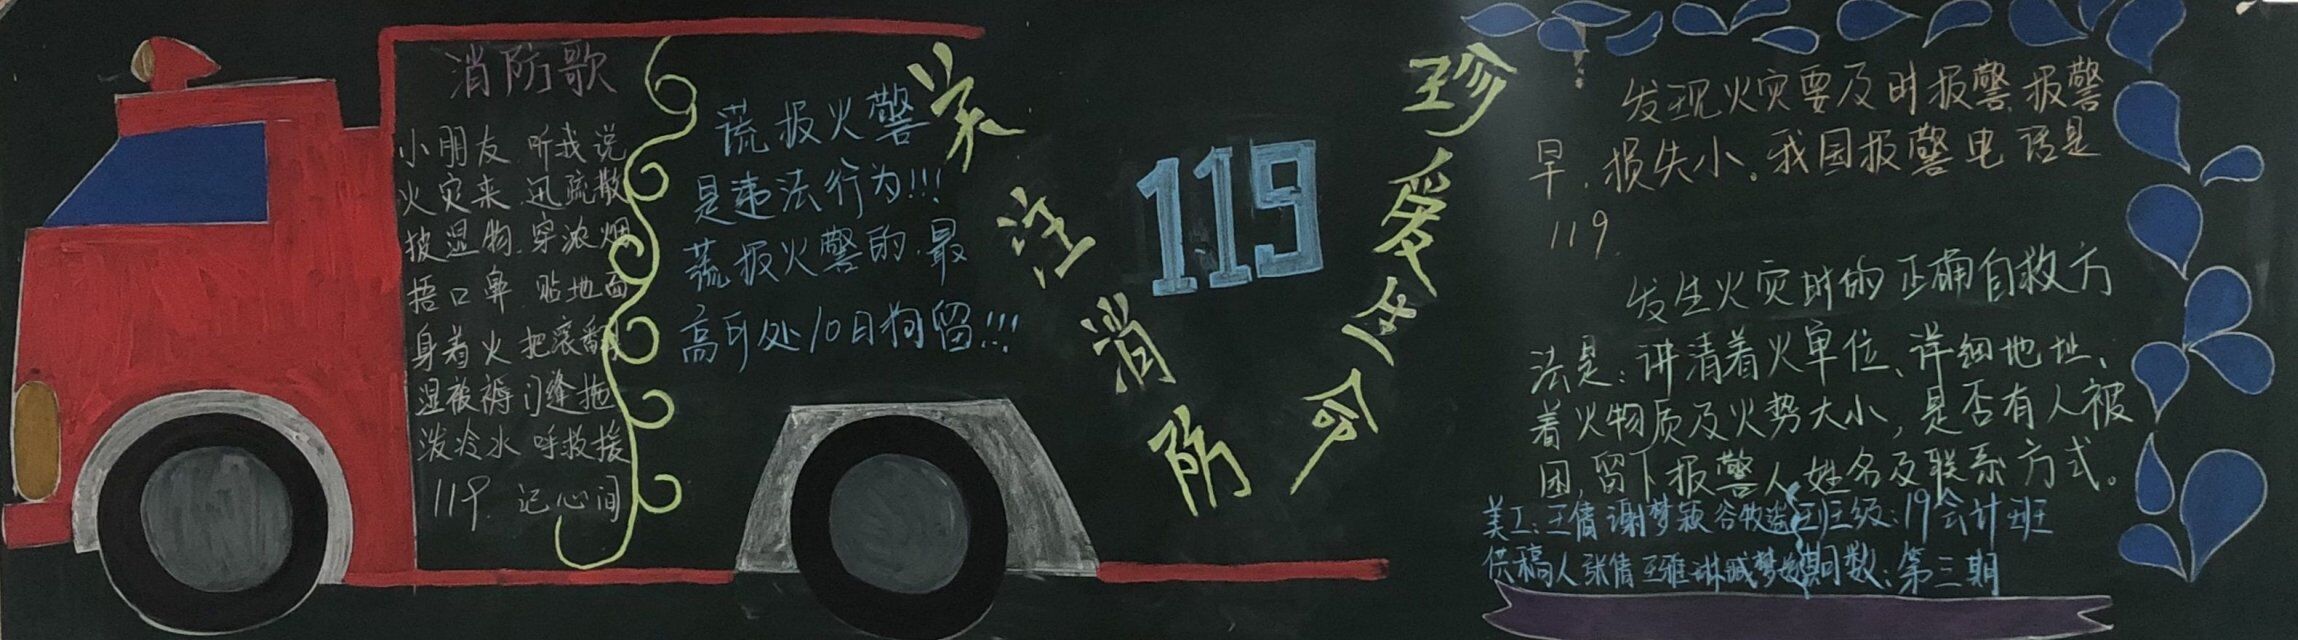 消防歌
小朋友 听我说
火灾来 迅疏散
披湿物 穿浓烟
捂口鼻 贴地面
身着火 把滚翻
湿被褥 门缝拖
泼冷水 呼救援
119 记心间
谎报火警
是违法行为!!!
谎报火警的,最
高可处10日拘留!!!
关注消防
119
珍爱生命
发现火灾要及时报警,报警
早,损失小。我国报警电话是
119.
发生火灾时的正确自救方
法是:讲清着火单位、详细地址、
着火物质及火势大小,是否有人被
困,留下报警人姓名及联系方式。
美工:王倩 谢梦颖 班级:19会计班
供稿人 张倩 期数:第三期